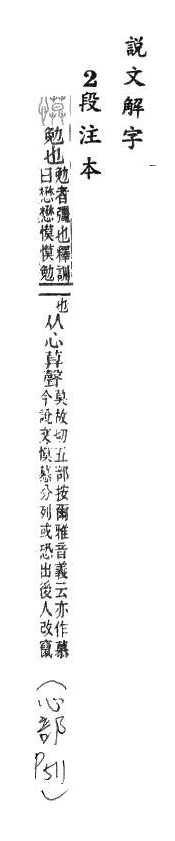 説文解字
2段注本
慔
勉也
勉者彊也釋訓
曰懋懋慔慔勉
也
从心莫聲
莫故切五部按爾雅音義云亦作慕
今說文慔慕分列或恐出後人改竄
(心部 P511)